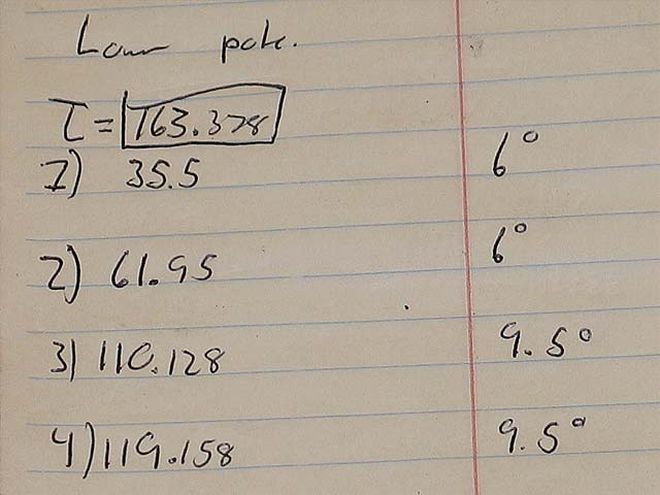 Lower pole.
I = 163.378
1) 35.5 6°
2) 61.95 6°
3) 110.128 9.5°
4) 119.158 9.5°